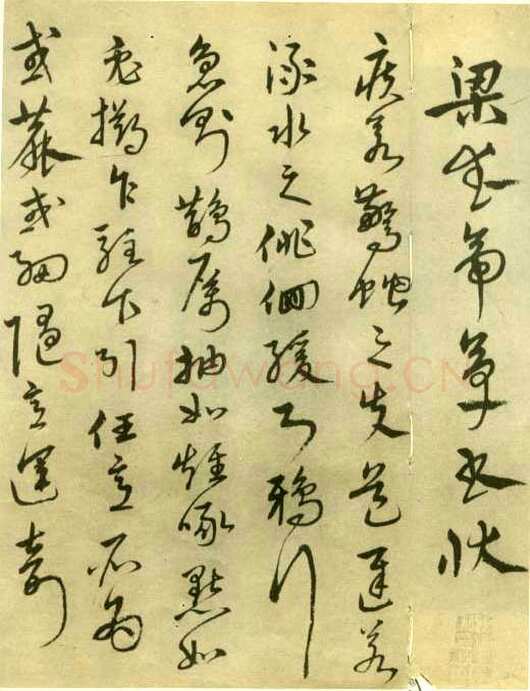 梁武帝草書狀
疾若驚蛇之失道遲若
淥水之徘徊緩則鴉行
急則鵲厲抽如雉啄點如
兔擲乍駐乍引任意所為
或麁或細隨意運奇
ShufaWang.CN